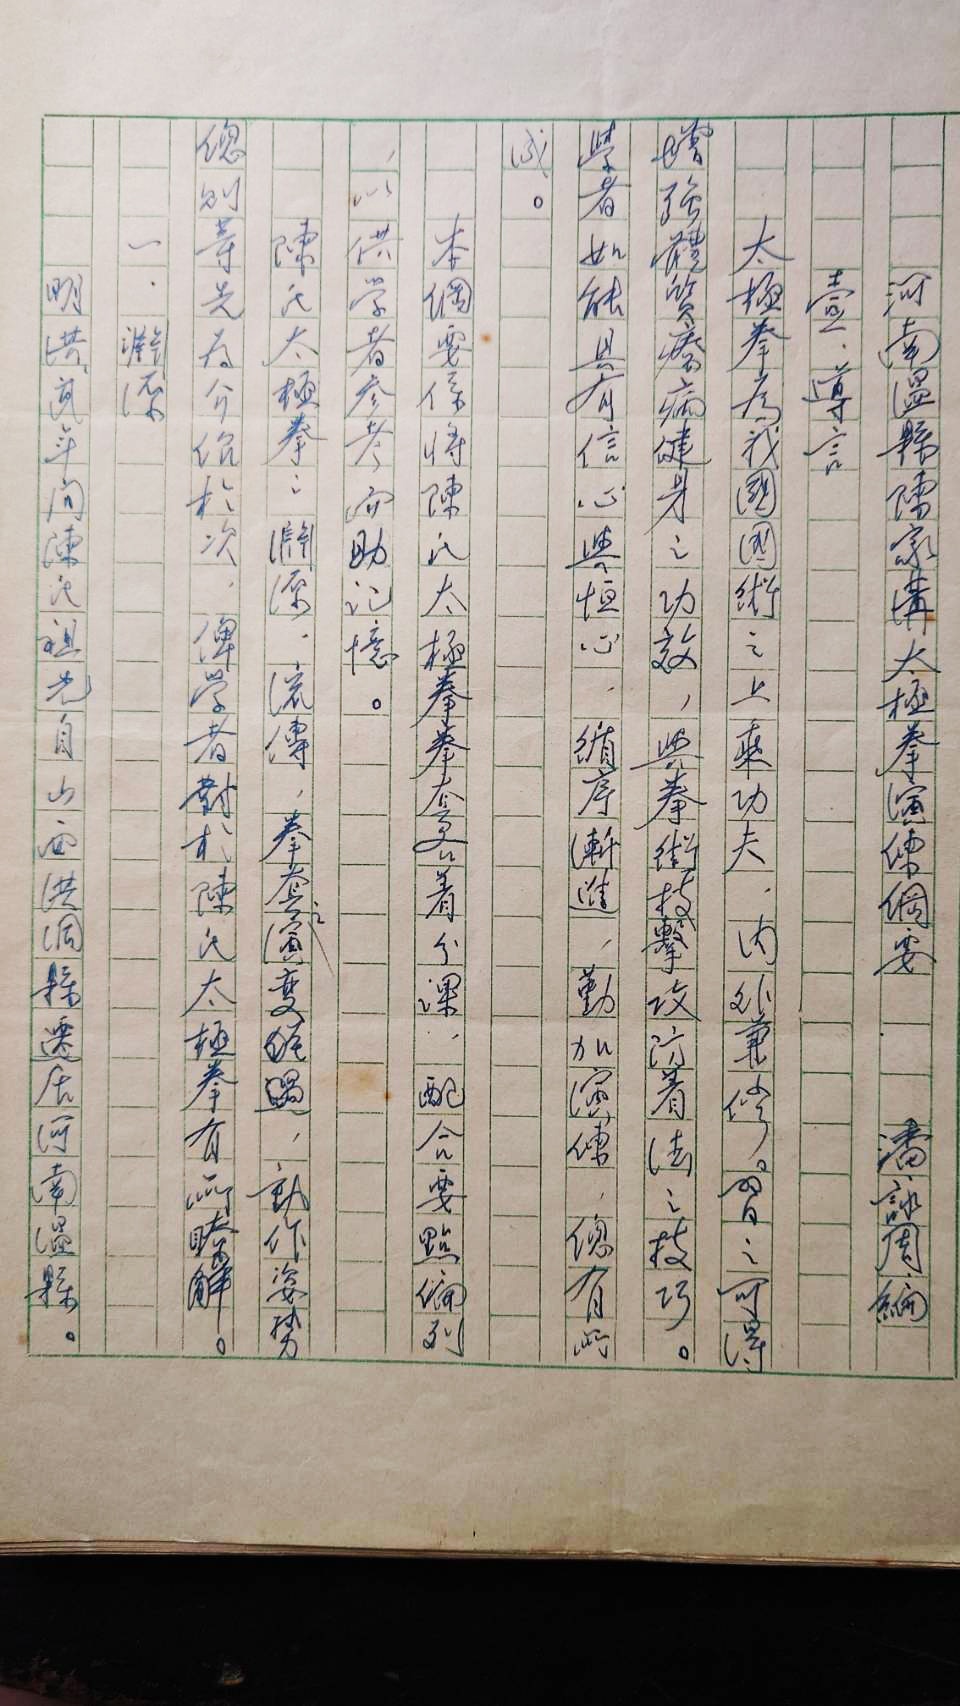 河南溫縣陳家溝太極拳演練綱要　潘詠周編
壹．導言
太極拳為我國國術之上乘功夫．內外兼修。習之可得
增強體質療病健身之功效，與拳術技擊攻防着法之技巧。
學者如能具有信心與恒心．循序漸進，勤加演練，總有所
成。
本綱要係將陳氏太極拳拳套以着分課．配合要點編列
，以供學者參考而助記憶。
陳氏太極拳之淵源．流傳，拳套演變之經過，動作姿勢
總別等先為介紹於次．俾學者對於陳氏太極拳有所瞭解。
一．淵源
明洪武年間陳氏祖先自山西洪洞縣遷居河南溫縣。